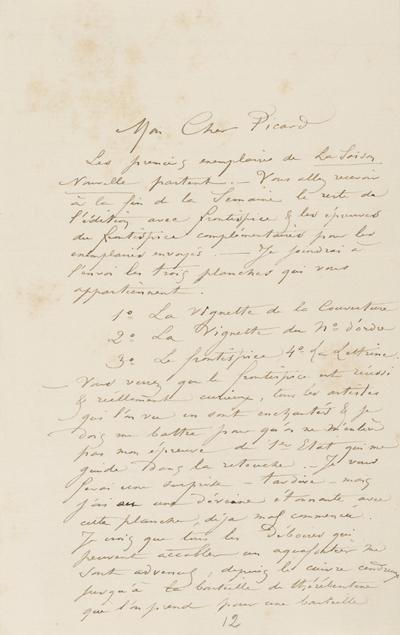 Mon Cher Picard
Les premiers exemplaires de La Saison
Nouvelle partent. — Vous allez recevoir
à la fin de la Semaine le reste de
l'édition avec frontispice & les épreuves
du frontispice complémentaires pour les
exemplaires envoyés. — Je joindrai à
l'envoi les trois planches qui vous
appartiennent.
1º La Vignette de la Couverture
2º La Vignette du Nº d'ordre
3º Le frontispice 4º La Lettrine
Vous verrez que le frontispice est réussi
& réellement curieux, tous les artistes
qui l'on vu en sont enchantés & je
dois me battre pour qu'on ne
pas mon épreuve de 1er Etat qui me
guide dans la retouche. — Je vous
ferai une surprise — tardive — mais
j'ai eu une déveine étonnante avec
cette planche, déja mal commencée.
Je crois que tous les Déboires qui
peuvent accabler un aquafortiste me
sont advenus, depuis le cuivre
jusqu'à la bouteille de thérébentine
que l'on prend pour une bouteille
12